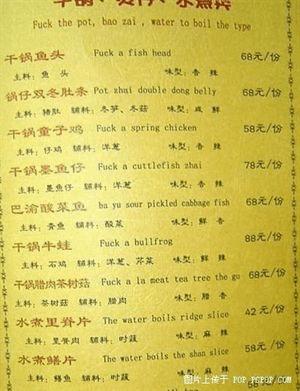 干锅、煲仔、水煮类
Fuck the pot, bao zai , water to boil the type
干锅鱼头 Fuck a fish head 68元/份
主料：鱼 头 味型：香 辣
锅仔双冬肚条 Pot zhai double dong belly 68元/份
主料：猪肚 辅料：冬笋、冬菇 味型：咸 鲜
干锅童子鸡 Fuck a spring chicken 58元/份
主料：仔鸡 辅料：洋葱 味型：香 辣
干锅墨鱼仔 Fuck a cuttlefish zhai 78元/份
主料：墨鱼仔 辅料：洋葱 味型：香 辣
巴渝酸菜鱼 ba yu sour pickled cabbage fish 68元/份
主料：青鱼 辅料：酸菜 味型：鲜 香
干锅牛蛙 Fuck a bullfrog 88元/份
主料：石鸡 辅料：洋葱、芹菜 味型：香 辣
干锅腊肉茶树菇 Fuck a la meat tea tree the go 68元/份
主料：茶树菇 辅料：腊肉 味型：腊 香
水煮里脊片 The water boils ridge slice 42元/份
主料：里脊肉 辅料：时蔬 味型：麻 辣
水煮鳝片 The water boils the shan slice 58元/份
主料：鳝鱼 辅料：时蔬 味型：麻 辣
图片上传于 POP.PCPOP.COM